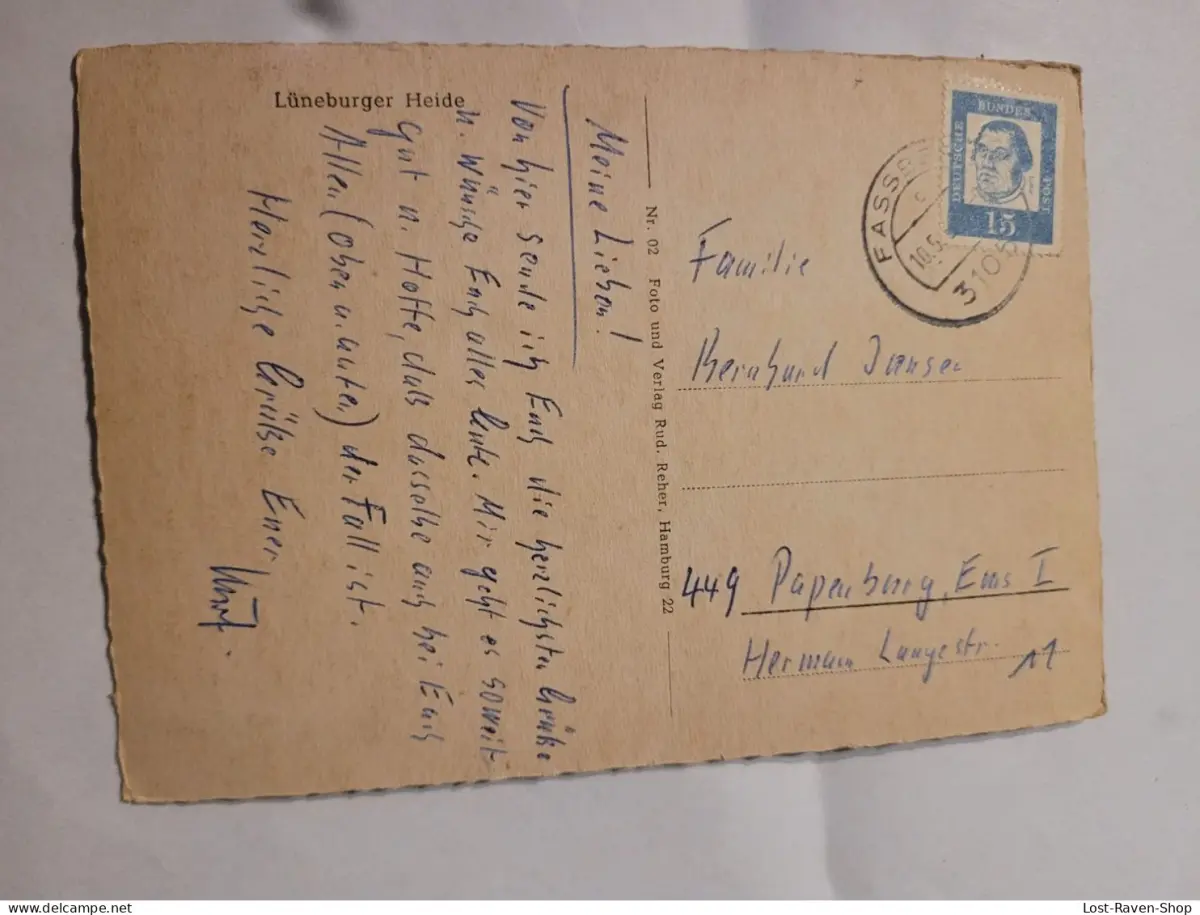 Lüneburger Heide
Meine Lieben!
Von hier sende ich Euch die herzlichsten Grüße
u. wünsche Euch alles Gute. Mir geht es soweit
gut u. Hoffe, dass dasselbe auch bei Euch
Allen (oben u. unten) der Fall ist.
Herzliche Grüße Euer
Nr. 02 Foto und Verlag Rud. Reher, Hamburg 22
DEUTSCHE
BUNDES
POST
15
FASSB
10.5
3105
Familie
Bernhard Jansen
449 Papenburg, Ems I
Hermann Langestr. 11
Lost-Raven-Shop